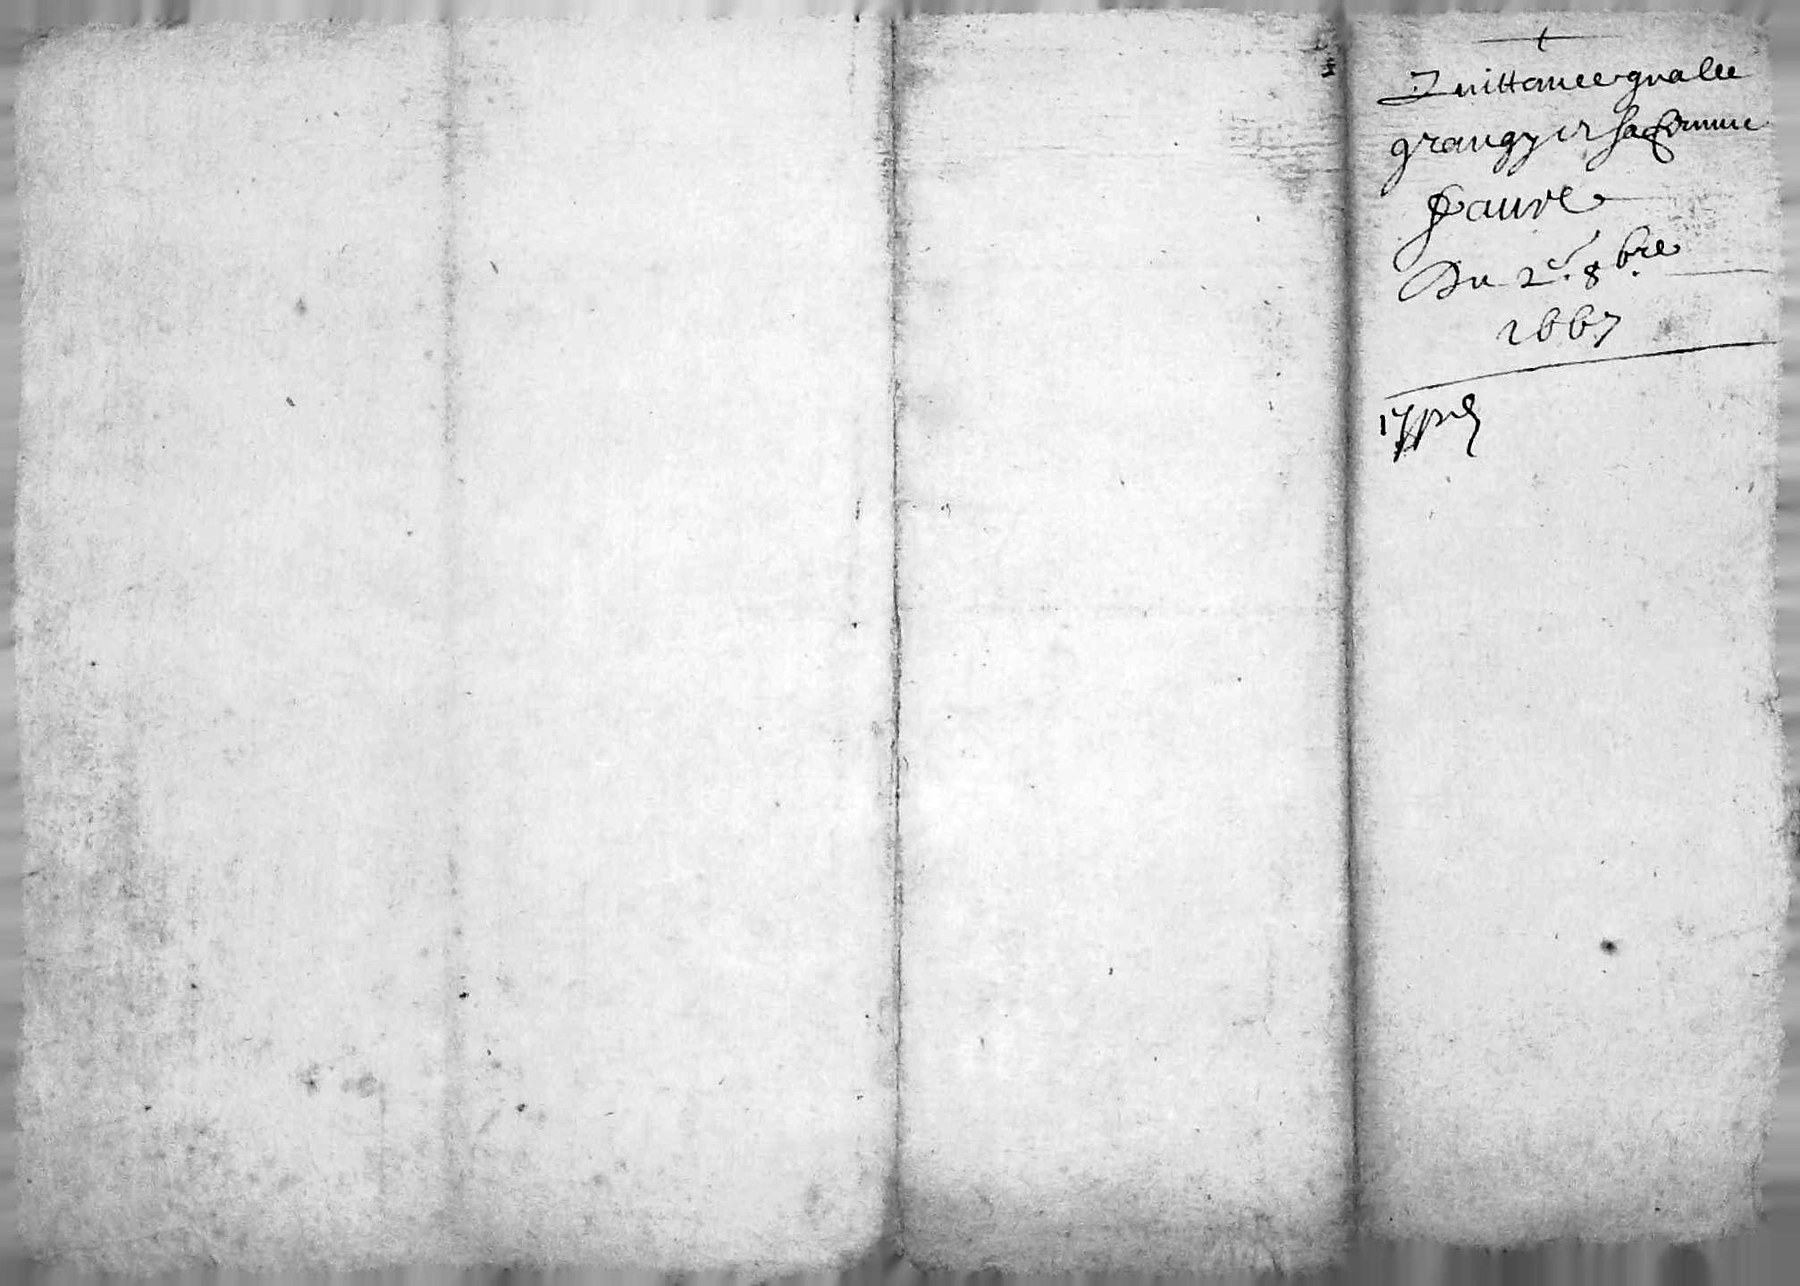 Quittance gnalle
grangy et sa femme
faure
Du 2e. 8bre
1667